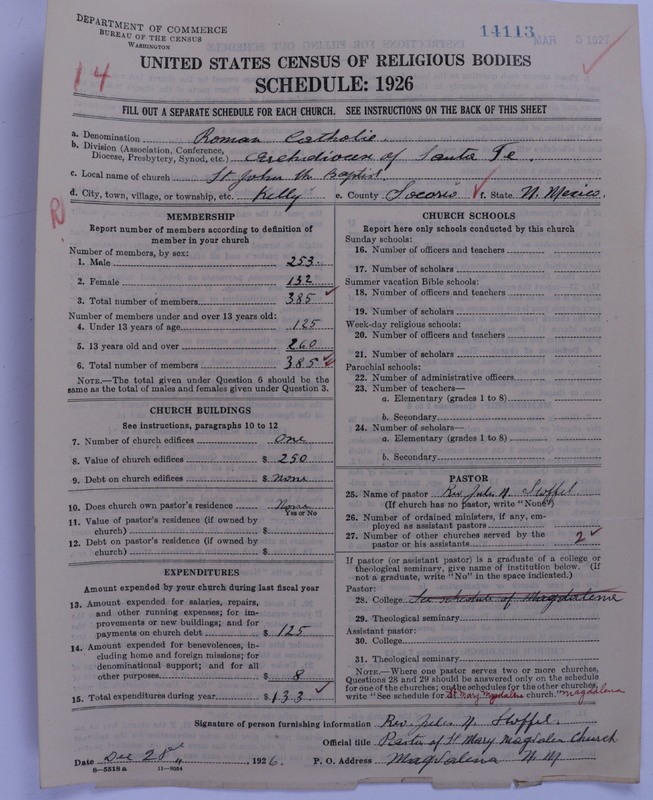 DEPARTMENT OF COMMERCE
BUREAU OF THE CENSUS
WASHINGTON
14113 MAR 5 1927
14
UNITED STATES CENSUS OF RELIGIOUS BODIES
SCHEDULE: 1926
FILL OUT A SEPARATE SCHEDULE FOR EACH CHURCH. SEE INSTRUCTIONS ON THE BACK OF THIS SHEET
a. Denomination Roman Catholic.
b. Division (Association, Conference, Diocese, Presbytery, Synod, etc.) Archdiocese of Santa Fe.
c. Local name of church St John the Baptist.
d. City, town, village, or township, etc. Kelly e. County Socorro f. State N. Mexico.
R
MEMBERSHIP
Report number of members according to definition of
member in your church
Number of members, by sex:
1. Male 253.
2. Female 132
3. Total number of members 385
Number of members under and over 13 years old:
4. Under 13 years of age 125
5. 13 years old and over 260
6. Total number of members 385
NOTE.—The total given under Question 6 should be the
same as the total of males and females given under Question 3.
CHURCH BUILDINGS
See instructions, paragraphs 10 to 12
7. Number of church edifices One
8. Value of church edifices $ 250
9. Debt on church edifices $ None
10. Does church own pastor's residence None
Yes or No
11. Value of pastor's residence (if owned by
church) $
12. Debt on pastor's residence (if owned by
church) $
EXPENDITURES
Amount expended by your church during last fiscal year
13. Amount expended for salaries, repairs,
and other running expenses; for im-
provements or new buildings; and for
payments on church debt $ 125
14. Amount expended for benevolences, in-
cluding home and foreign missions; for
denominational support; and for all
other purposes $ 8
15. Total expenditures during year $ 133
CHURCH SCHOOLS
Report here only schools conducted by this church
Sunday schools:
16. Number of officers and teachers
17. Number of scholars
Summer vacation Bible schools:
18. Number of officers and teachers
19. Number of scholars
Week-day religious schools:
20. Number of officers and teachers
21. Number of scholars
Parochial schools:
22. Number of administrative officers
23. Number of teachers—
a. Elementary (grades 1 to 8)
b. Secondary
24. Number of scholars—
a. Elementary (grades 1 to 8)
b. Secondary
PASTOR
25. Name of pastor Rev. Jules N. Stoffel
(If church has no pastor, write "None")
26. Number of ordained ministers, if any, em-
ployed as assistant pastors
27. Number of other churches served by the
pastor or his assistants 2
If pastor (or assistant pastor) is a graduate of a college or
theological seminary, give name of institution below. (If
not a graduate, write "No" in the space indicated.)
Pastor:
28. College See schedule of Magdalena
29. Theological seminary
Assistant pastor:
30. College
31. Theological seminary
NOTE.—Where one pastor serves two or more churches,
Questions 28 and 29 should be answered only on the schedule
for one of the churches; on the schedules for the other churches,
write "See schedule for St Mary Magdalene church." magdalena
Signature of person furnishing information Rev. Jules N. Stoffel.
Official title Pastor of St Mary Magdalen Church
Date Dec 28th, 1926. P. O. Address Magdalena N. M
8—5518a 11—9084